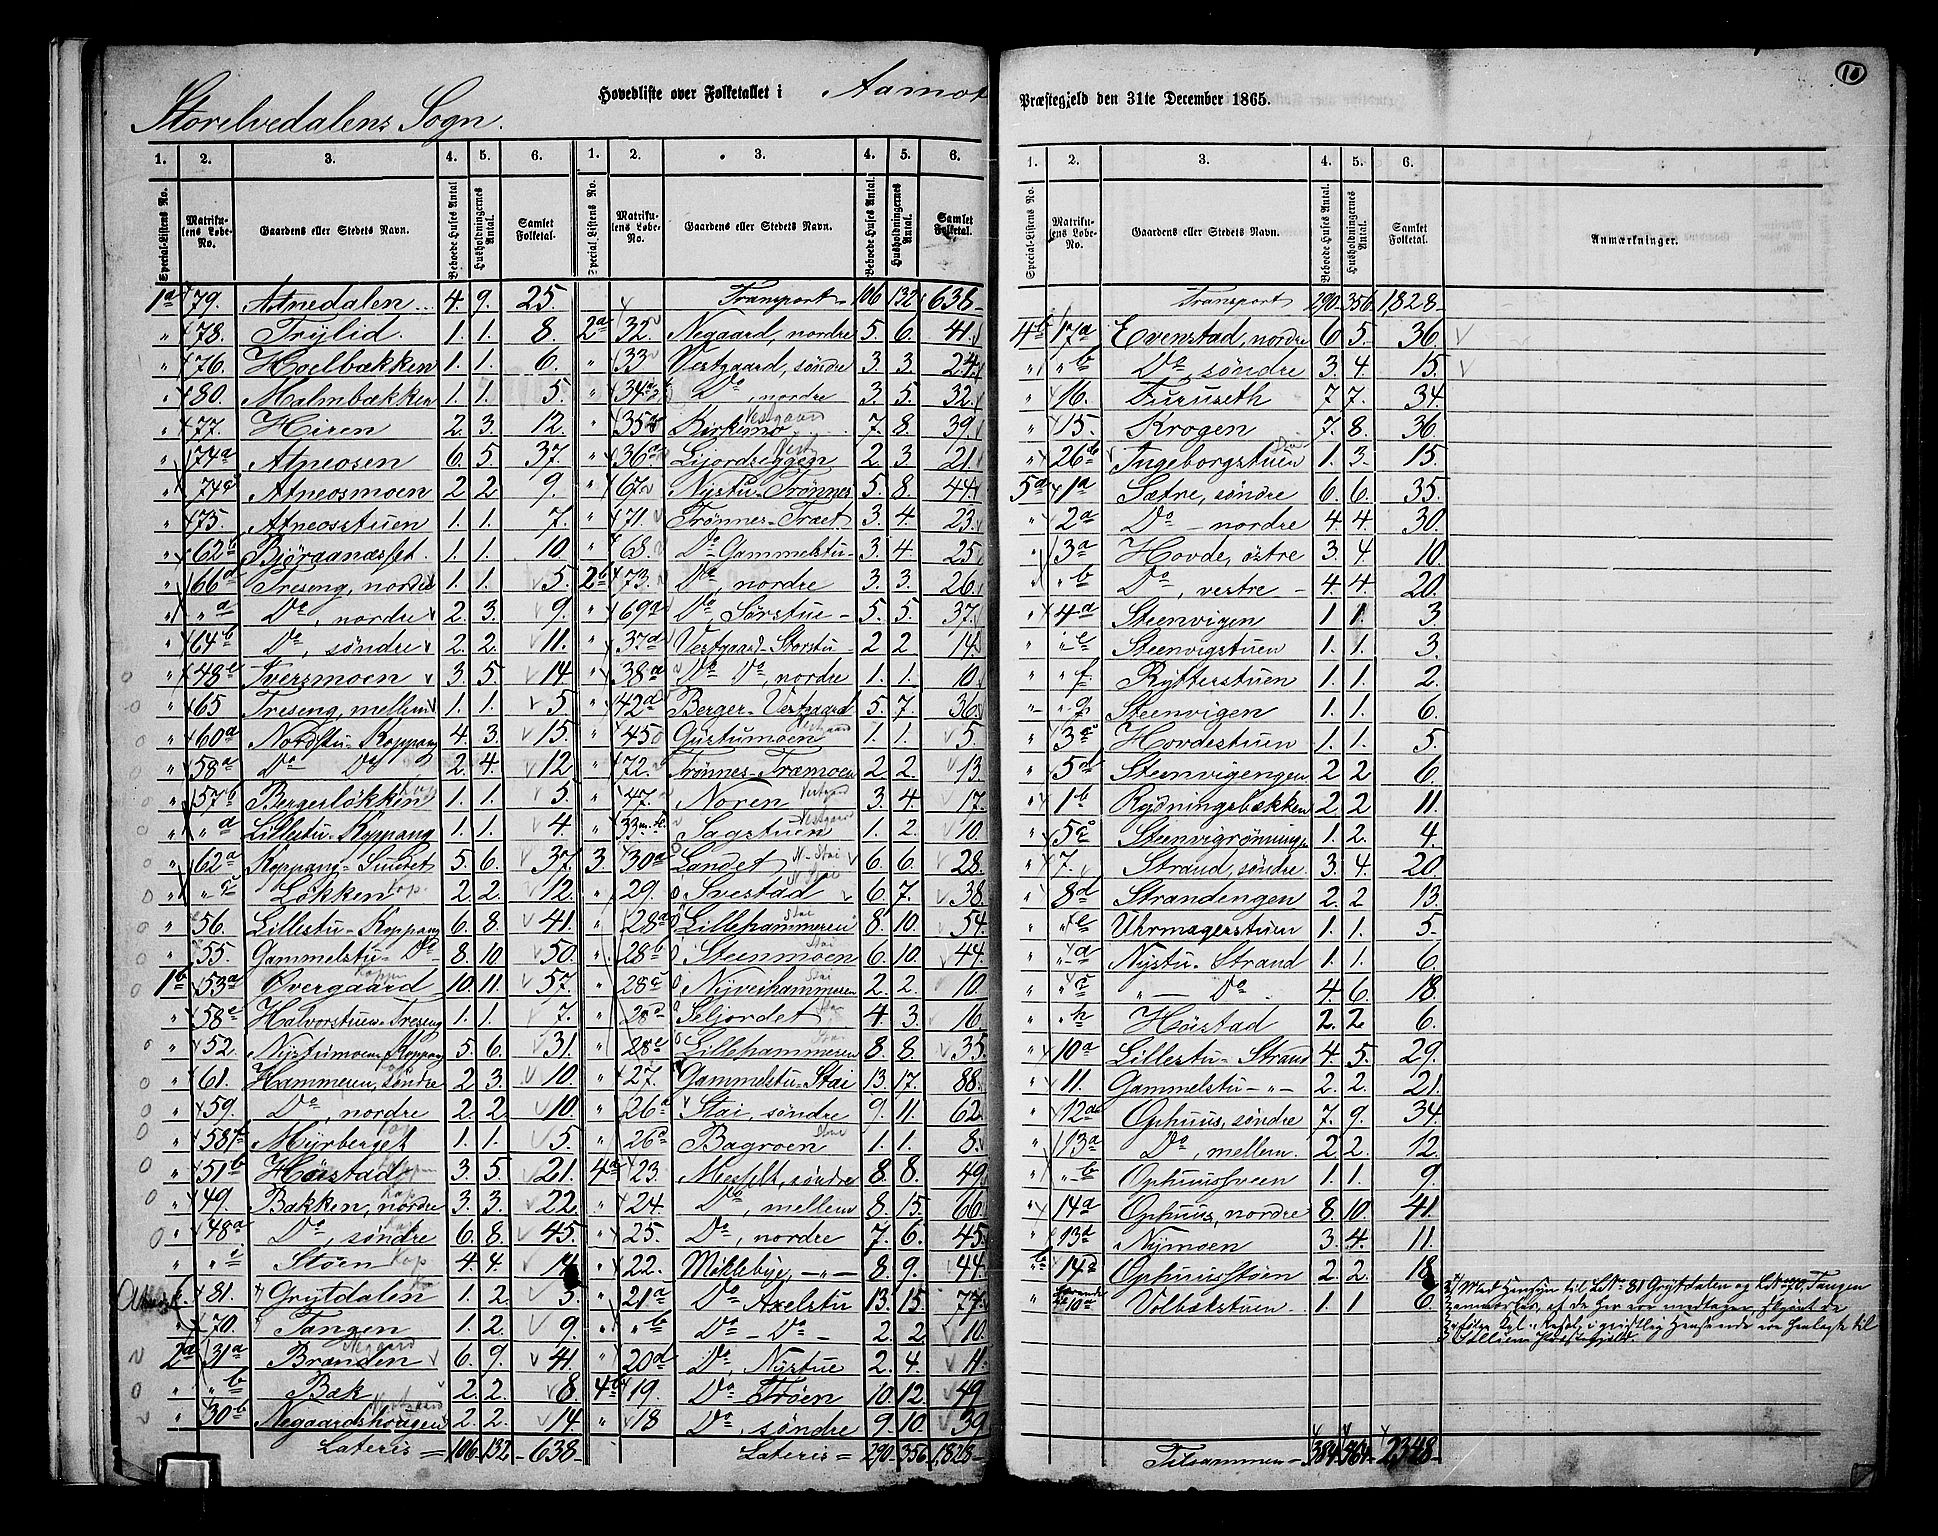 10
Storelvedalens Sogn.
Hovedliste over Folketallet i Aamot
Præstegjeld den 31te December 1865.
1. 2. 3. 4. 5. 6. 1. 2. 3. 4. 5. 6.
Special-Listens No. Matrikulens Løbe-No. Gaardens eller Stedets Navn. Beboede Huses Antal Husholdningernes Antal. Samlet Folketal. Special-Listens No. Matrikulens Løbe-No. Gaardens eller Stedets Navn. Beboede Huses Antal. Husholdningernes Antal. Samlet Folketal.
1a 79. Atnedalen 4. 9. 25.
" 78. Trylid. 1. 1. 8.
" 76. Hoelbækken 1. 1. 6.
" 80. Malmbækken 1. 1. 5.
" 77. Hiren 2. 3. 12.
" 74a Atneosen 6. 5. 37.
" 74c Atneosmoen 2. 2 9.
" 75. Atneosstuen 1. 1. 7.
" 62b Bjøraanæsset. 1. 1. 10.
" 66d Treseng, nordre 1. 1. 5.
" " a Do, nordre 2. 3. 9.
" 64b Do, søndre 2. 2. 11.
" 48e Tversmoen 3. 5. 14
" 65 Treseng, mellem 1. 1. 5
" 60a Nordstu-Koppang 4. 3 15.
" 58a Do Do 2. 4. 12
" 57b Bergerløkken 1. 1. 5.
" " a Lillestu-Koppang 1. 1. 4.
" 62a Koppang- 5. 6. 37.
" " c Løkken Kop. 2. 2. 12.
" 56. Lillestu-Koppang 6. 8. 41.
" 55. Gammelstu-Do 8. 10. 50.
1b 53a Øvergaard 10. 11. 57.
" 58e Halvorstuen-Treseng 1. 1. 7.
" 52. Nystumoen-Koppang 5. 6. 31.
" 61. Hammeren, søndre 2 3. 10.
" 59. Do, nordre 2. 2. 10.
" 58f Myrberget 1. 1. 5.
" 51b Høistad 3. 5. 21.
" 49. Bakken, nordre 3. 3. 22
" 48a Do, søndre 6. 8. 45.
" " Støen Kop 4. 4. 14
81. Grytdalen 1. 2. 3.
" 70. Tangen 1. 2. 9.
2a 31a Brænden 6. 9. 41.
" " b Bæk 2. 2. 8.
" 30b Negaardshougen 2. 2. 14.
Lateris = 106 132 638.
Transport 106 132 638
2a 32. Negaard, nordre 5. 6. 41.
" 33 Vestgaard, søndre 3. 3. 24.
" 34a Do, nordre 3. 5. 32.
" 35a Kirkemo Vestgaard 7. 8. 39.
" 36a Lijordseggen Vest 2. 3. 21.
" 67 Nystu-Trønnes 5. 8. 44.
" 71. Trønnes-Træet 3. 4. 23.
" 68. Do Gammelstu- 3. 4. 25
2b 73. Do, nordre 3. 3. 26.
" 69a Do, Sørstue- 5. 5. 37.
" 37a Vestgaard-Storstu- 2 2. 14.
" 38a Do Do, nordre 1. 1. 10.
" 42a Berger-Vestgaard 5. 7. 36.
" 45 Gystumoen Vestgaard 1. 1. 5.
" 72. Trønnes-Træmoen 2 2. 13.
" 47. Noren Vestgaard 3. 4. 17.
" 33 Sagstuen Vestgaard 1. 2. 10.
3. 30a Landet N-Stai 6. 6. 28.
" 29. Svestad N. Stai 6. 7. 38.
" 28a Lillehammeren Stai 8. 10. 54.
" 28b Steenmoen Stai 6. 10. 44.
" 28c Nyveihammeren Stai 2. 2. 10.
" 28d Seljordet 4. 3 16.
" 28e Lillehammeren Stai 8. 8. 35.
" 27. Gammelstu-Stai 13. 17. 88.
" 26a Stai, søndre 9. 11. 62.
" 26 Bagroen Stai 1. 1. 8.
4a 23. Messelt, søndre 8. 8. 49.
" 24. Do, mellem 8. 15. 66.
" 25. Do, nordre 7. 6. 45.
" 22. Møklebye, -"- 8. 9. 44.
" 21a Do Axelstu 13. 15. 77.
" " b Do - Do - 2. 2 10.
" 20d Do, Nystue 2. 4. 11.
4b 19. Do Trøen 10. 12. 49
" 18 Do, søndre 9. 10. 39
Lateris = 290 356 1828
1. 2. 3. 4. 5. 6.
Special-Listens No. Matrikulens Løbe-No. Gaardens eller Stedets Navn. Beboede Huses Antal. Husholdningernes Antal. Samlet Folketal. Anmærkninger.
Transport 290 356 1828
4b 17a Evenstad, nordre 6 5. 36.
" " b Do, søndre 3. 4. 15.
" 16. Furuseth 7 7. 34.
" 15. Krogen 7. 8. 36
" 26b Ingeborgstuen 1. 3. 15.
5a 1a Sætre, søndre 6. 6. 35.
" 2a Do - nordre 4. 4. 30.
" 3a Hovde, østre 3. 4. 10.
" " b Do, vestre - 4. 4. 20.
" 4a Steenvigen 1 1. 3
" " e Steenvigstuen 1. 1. 3.
" " f. Rytterstuen 1. 1. 2.
" " g. Steenvigen 1. 1. 6.
" 3c Hovdestuen 1. 1. 5.
" 5d Steenvigengen 2 2 6.
" 1b Rydningsbækken 2 2 11.
" 5c Steenvigrønningen 1. 2. 4.
" 7. Strand, søndre. 3. 4. 20.
" 8d Strandengen 2. 2 13.
" " e Uhrmagerstuen 1. 1. 5.
" " a Nystu-Strand 1. 1. 6.
" " c " - Do. 4. 6. 18.
" " h Høistad 2. 2 6.
" 10a Lillestu-Strand 4. 5. 29.
" 11. Gammelstu-"- 2. 2. 21.
" 12a Ophuus, søndre 7. 9. 34.
" 13a Do, mellem. 2 2. 12.
" " b Ophuussveen 1. 1. 9.
" 14a Ophuus, nordre 8. 10. 41.
" 13d Nymoen 3. 4. 11.
" 14d Ophuusstøen 2. 2. 18
" 10a Volbækstuen. 1. 1 6.
Med Hensyn til LNo 81 Grytdalen og LNo 70, Tangen
anmærkes, at de her ere medtagne, skjønt de
ifølge Kgl. Resol. i geistlig Henseende ere henlagte til
Tilsammen - 384 464 2348